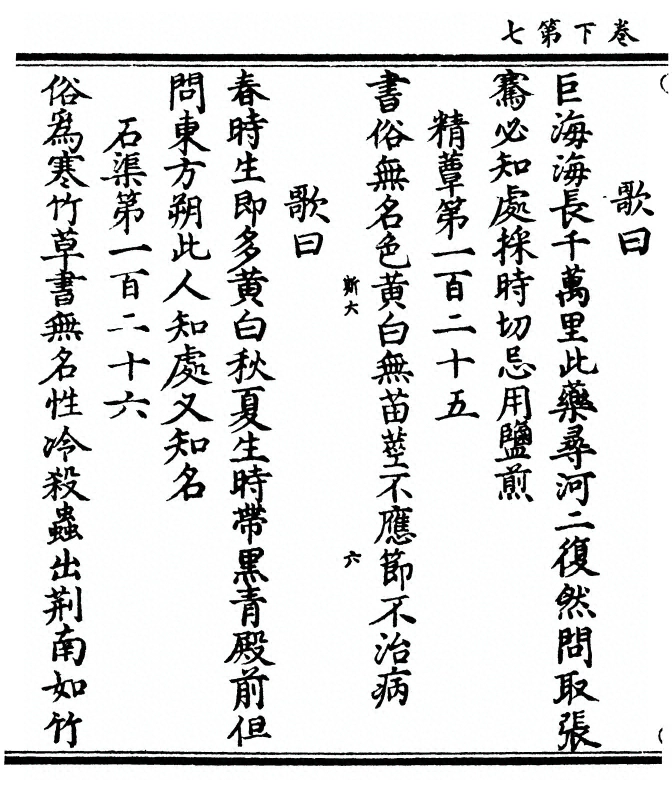 卷下第七
歌曰
巨海海長千萬里此藥尋河二復然問取張
騫必知處採時切忌用鹽煎
精蕈第一百二十五
書俗無名色黃白無苗莖不應節不治病
斯大
六
歌曰
春時生即多黃白秋夏生時帶黑青殿前但
問東方朔此人知處又知名
石渠第一百二十六
俗爲寒竹草書無名性冷殺蟲出荆南如竹